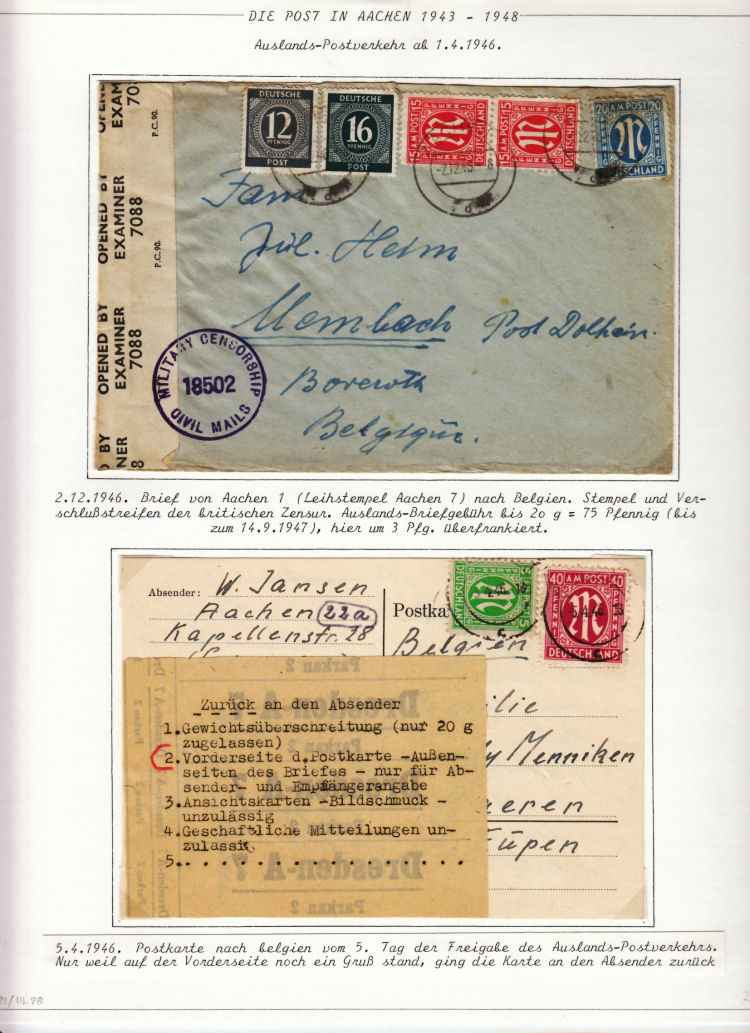 DIE POST IN AACHEN 1943 - 1948
Auslands-Postverkehr ab 1.4.1946.
OPENED BY
EXAMINER
7088
P.C. 90.
OPENED BY
EXAMINER
7088
P.C. 90.
OPENED BY
EXAMINER
7088
DEUTSCHE
12
PFENNIG
POST
DEUTSCHE
16
PFENNIG
POST
15 AM POST 15
PFENNIG
M
DEUTSCHLAND
15 AM POST 15
PFENNIG
M
DEUTSCHLAND
20 AM POST 20
PFENNIG
M
DEUTSCHLAND
Jül. Heim
Membach Post Dolhain.
Belgique.
MILITARY CENSORSHIP
18502
CIVIL MAILS
2.12.1946. Brief von Aachen 1 (Leihstempel Aachen 7) nach Belgien. Stempel und Ver-
schlußstreifen der britischen Zensur. Auslands-Briefgebühr bis 2o g = 75 Pfennig (bis
zum 14.9.1947), hier um 3 Pfg. überfrankiert.
Absender: W. Jansen
Aachen 22a
Kapellenstr. 28
Postka
Belgien
5 AM POST 5
PFENNIG
M
DEUTSCHLAND
40 AM POST 40
PFENNIG
M
DEUTSCHLAND
5.4.46
ilie
dy Menniken
aeren
Eupen
Zurück an den Absender
1. Gewichtsüberschreitung (nur 20 g
zugelassen)
2. Vorderseite d.Postkarte -Außen-
seiten des Briefes - nur für Ab-
sender- und Empfängerangabe
3. Ansichtskarten -Bildschmuck -
unzulässig
4. Geschaftliche Mitteilungen un-
zulässig
5. . . . . . . . . . . . . . . .
Parkan 2
Dresden-A 7
Parkan 2
Dresden-A 7
Parkan 2
5.4.1946. Postkarte nach belgien vom 5. Tag der Freigabe des Auslands-Postverkehrs.
Nur weil auf der Vorderseite noch ein Gruß stand, ging die Karte an den Absender zurück